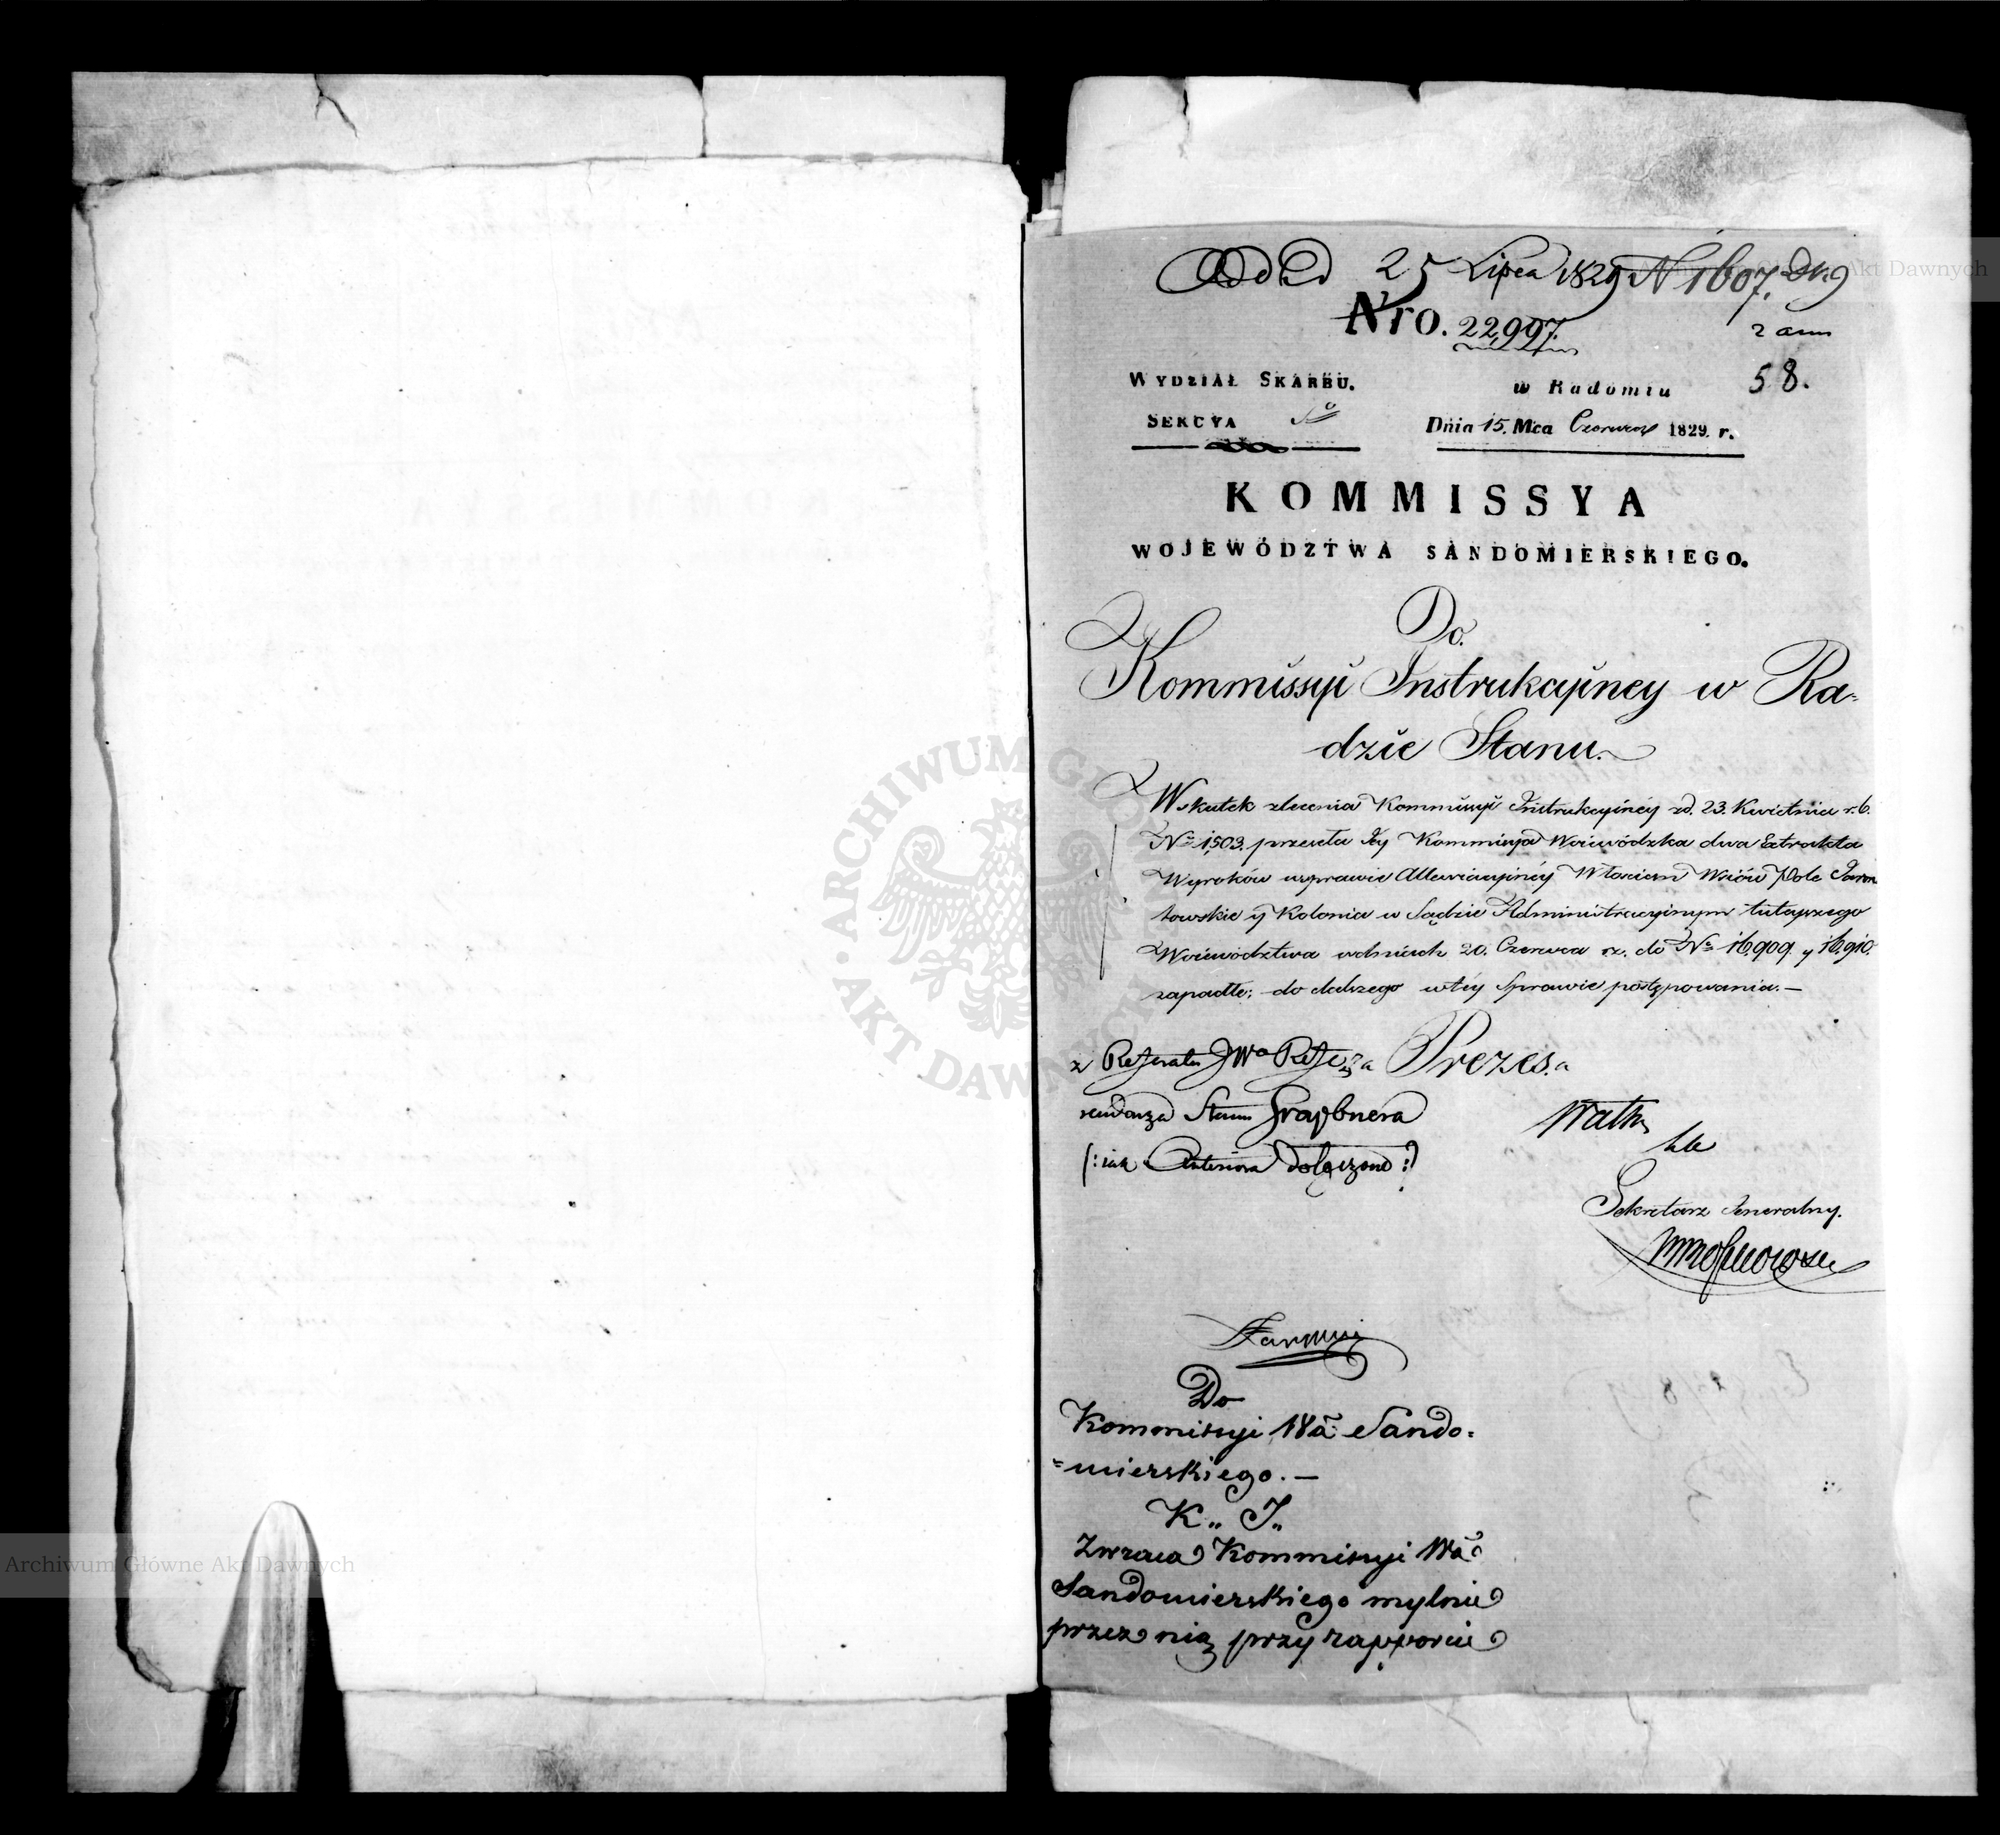 Odd 25 Lipca 1829 N 1607.
Nro. 22,997.
2 ann
58.
WYDZIAŁ SKARBU.
w Radomiu
SEKCYA
Dnia 15. Mca Czerwca 1829. r.
KOMMISSYA
WOJEWÓDZTWA SANDOMIERSKIEGO.
Do.
Kommissyi Instrukcyiney w Ra=
dzie Stanu.
Wskutek zlecenia Kommissyi Instrukcyiney zd. 23. Kwietnia r. b.
No 1,503. przesyła Jey Kommissya Woiewódzka dwa Extrakta
Wyroków wsprawie Allewiacyiney Włościan Wsiów Pole Jaron
towskie y Kolonia w Sądzie Administracyinym tutayszego
Woiewództwa wdniach 20. Czerwca rz. do No 16,909. y 16,910.
zapadłe; do dalszego wtéy Sprawie postępowania. —
z Referatu JWo Refe Prezes.
rendarza Stanu Graybnera
(: iak Anteriora dołączone :)
Sekretarz Jeneralny.
Do
Kommissyi Wa Sando=
=mierskiego. —
K.. I..
Zwraca Kommissyi Wa
Sandomierskiego mylnie
przez nią przy rapporcie
ARCHIWUM GŁÓWNE AKT DAWNYCH
Archiwum Główne Akt Dawnych